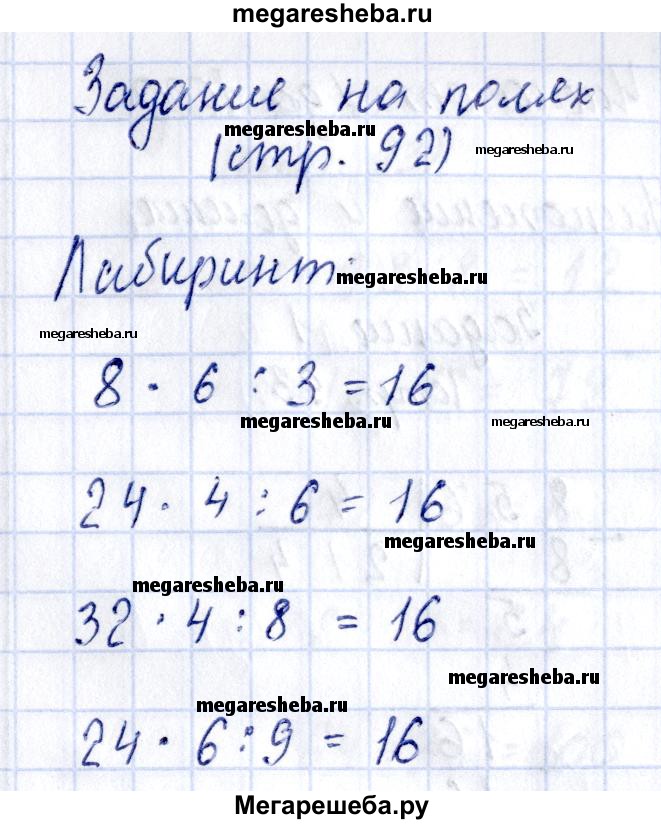 megaresheba.ru
Задание на полях
megaresheba.ru
(стр. 92)
megaresheba.ru
Лабиринт:
megaresheba.ru
megaresheba.ru
8 · 6 : 3 = 16
megaresheba.ru
megaresheba.ru
24 · 4 : 6 = 16
megaresheba.ru
megaresheba.ru
32 · 4 : 8 = 16
megaresheba.ru
megaresheba.ru
24 · 6 : 9 = 16
Мегарешеба.ру